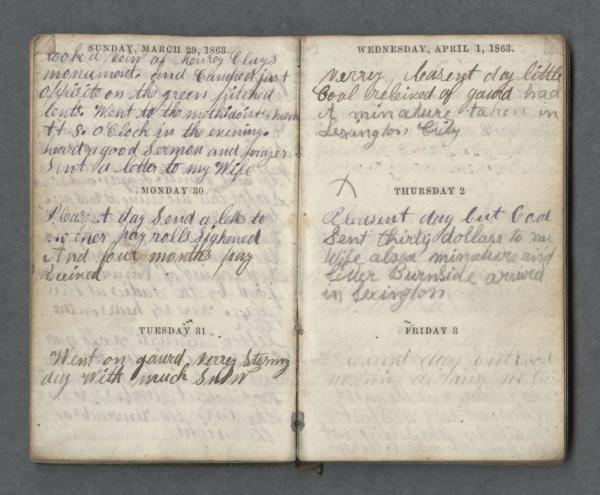 SUNDAY, MARCH 29, 1863.
took a view of Henrey Clays
monument. and Camped just
oppisite on the green pitched
tents. Went to the methodist
At 8 O Clock in the evening.
heard a good Sermon and prayer
Sent a letter to my Wife
MONDAY 30
Pleasent day Send a letter to
mother pay rolls Sighened
And four months pay
Received
TUESDAY 31
Went on gaurd verrey Stormy
day With much Snow
WEDNESDAY, APRIL 1, 1863.
verrey pleasent day little
Cool releived of gaurd had
A minature taken in
Lexington City
X
THURSDAY 2
Pleasent day but Cool
Sent thirty dollars to my
Wife also a minature and
letter Burnside arrived
in Lexington
FRIDAY 3
day